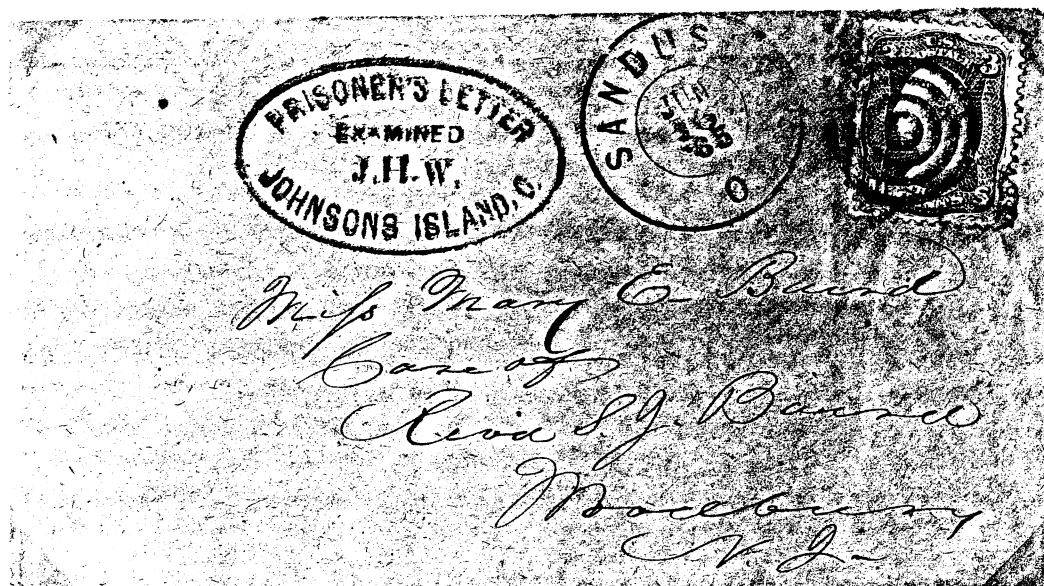 PRISONER'S LETTER
EXAMINED
J.H.W.
JOHNSONS ISLAND, O.
SANDUS
JUN
6
65
O
3
3
Miss Mary E. Baird
Care of
Revd S. J. Baird
Woodbury
N. J.